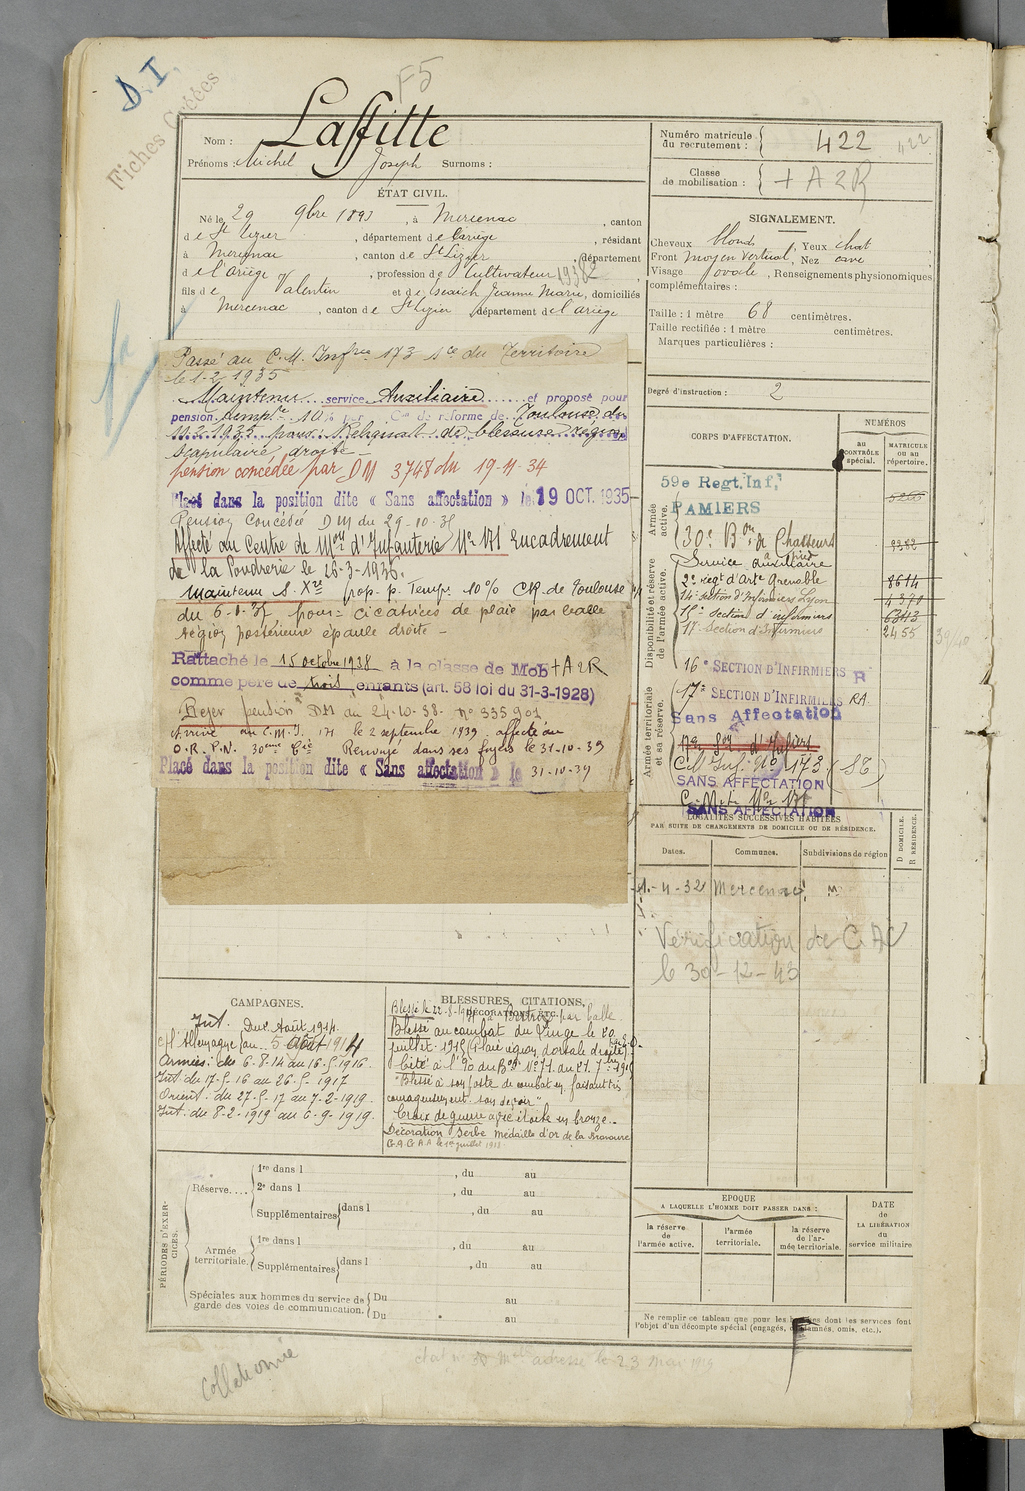 D.I.
Fiches Créées
F5
Nom : Laffitte
Prénoms : Michel Joseph Surnoms :
Numéro matricule du recrutement : 422
422
Classe de mobilisation : + A 2 R
ÉTAT CIVIL.
Né le 29 9bre 1893, à Mercenac, canton
de St Lizier, département de l'ariège, résidant
à Mercenac, canton de St Lizier, département
de l'ariège, profession de Cultivateur 19382
fils de Valentin et de Jeanne Marie, domiciliés
à Mercenac, canton de St Lizier, département de l'ariège
SIGNALEMENT.
Cheveux blonds, Yeux chat
Front moyen vertical, Nez cave
Visage ovale, Renseignements physionomiques
complémentaires :
Taille : 1 mètre 68 centimètres.
Taille rectifiée : 1 mètre centimètres.
Marques particulières :
Degré d'instruction : 2
Passé au C.M. Infrie 173 du Territoire
le 1-2-1935
Maintenu service Auxiliaire et proposé pour
pension temp. 10% par Con de réforme de Toulouse du
11-2-1935 pour Reliquat de blessure région
scapulaire droite -
pension concédée par DM 3748 du 19-11-34
Placé dans la position dite « Sans affectation » le 19 OCT. 1935
Pension Concédée DM du 29-10-35
Affecté au Centre de Mon d'Infanterie No 171 Encadrement
de la Poudrerie le 26-3-1936.
Maintenu S. Xre prop. p. Temp. 10% CR de Toulouse
du pour : cicatrices de plaie par balle
région postérieure épaule droite -
Rattaché le 15 octobre 1938 à la classe de Mob + A 2 R
comme père de trois enfants (art. 58 loi du 31-3-1928)
Rejet pension DM du 24-10-38- no 335901
Arrivé au C.M.I. 171 le 2 septembre 1939 affecté au
O.R.P.N. 30ème Cie Renvoyé dans ses foyers le 31-10-39
Placé dans la position dite « Sans affectation » le 31-10-39
CORPS D'AFFECTATION.
NUMÉROS
au CONTRÔLE spécial.
MATRICULE ou au répertoire.
Armée active.
59e Regt. Inf.
PAMIERS
30e Bon de Chasseurs à pied
Disponibilité et réserve de l'armée active.
Service auxiliaire
2e régt d'Arte Grenoble 8614
14e section d'Infirmiers Lyon 4370
15e section d'infirmiers 6343
17e Section d'Infirmiers 2455
39/40
16e SECTION D'INFIRMIERS R
Armée territoriale et sa réserve.
17e SECTION D'INFIRMIERS RA
Sans Affectation
C.M. Inf. No 173 (SE)
SANS AFFECTATION
SANS AFFECTATION
LOCALITÉS SUCCESSIVES HABITÉES
PAR SUITE DE CHANGEMENTS DE DOMICILE OU DE RÉSIDENCE.
Dates. Communes. Subdivisions de région
D DOMICILE.
R RÉSIDENCE.
1-11-32 Mercenac
Vérification de C.A.V
le 30-12-43
CAMPAGNES.
Int. Du 2 Août 1914
c/l'Allemagne au 5 Août 1914
Armées : du 6-8-14 au 16-5-1916
Int. du 17-5-16 au 26-5-1917
Orient. du 27-5-17 au 7-2-1919-
Int. du 8-2-1919 au 6-9-1919.
BLESSURES, CITATIONS, DÉCORATIONS, ETC.
Blessé au combat du Linge le 20
juillet 1915 (Plaie région dorsale droite).
Cité à l'O. du Bon
"Blessé à son poste de combat en faisant très
courageusement son devoir"
Croix de guerre avec étoile en bronze.-
Décoration Serbe Médaille d'or de la Bravoure
PÉRIODES D'EXERCICES.
Réserve.... 1re dans l , du au
2e dans l , du au
Supplémentaires dans l , du au
Armée territoriale. 1re dans l , du au
Supplémentaires dans l , du au
Spéciales aux hommes du service de garde des voies de communication. Du au
Du au
EPOQUE
A LAQUELLE L'HOMME DOIT PASSER DANS :
la réserve de l'armée active.
l'armée territoriale.
la réserve de l'armée territoriale.
DATE de LA LIBÉRATION du service militaire
Ne remplir ce tableau que pour les hommes dont les services font
l'objet d'un décompte spécial (engagés, condamnés, omis, etc.).
Collationné
adressé le 23 Mai 1919